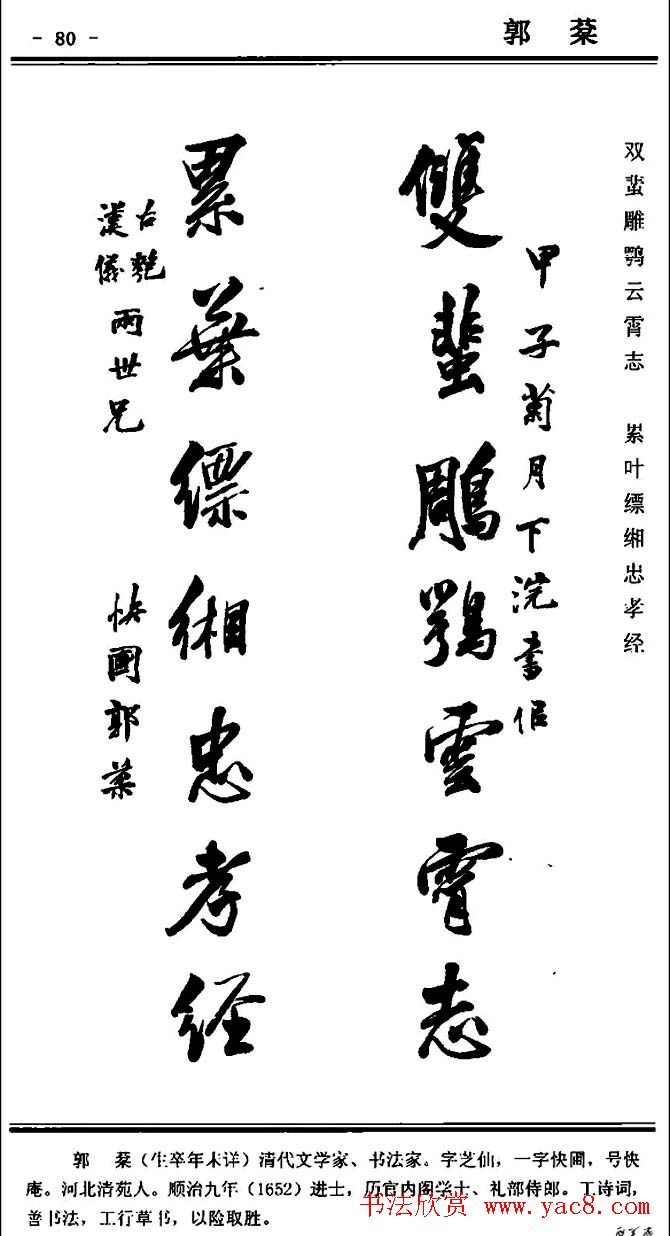 - 80 -
郭 棻
双蜚雕鹗云霄志 累叶缥缃忠孝经
甲子菊月下浣書佀
雙蜚鵰鶚雲霄志
累葉縹緗忠孝經
古艷
漢儀
兩世兄
快圃郭棻
郭 棻（生卒年未详）清代文学家、书法家。字芝仙，一字快圃，号快
庵。河北清苑人。顺治九年（1652）进士，历官内阁学士、礼部侍郎。工诗词，
善书法，工行草书，以险取胜。
书法欣赏 www.yac8.com